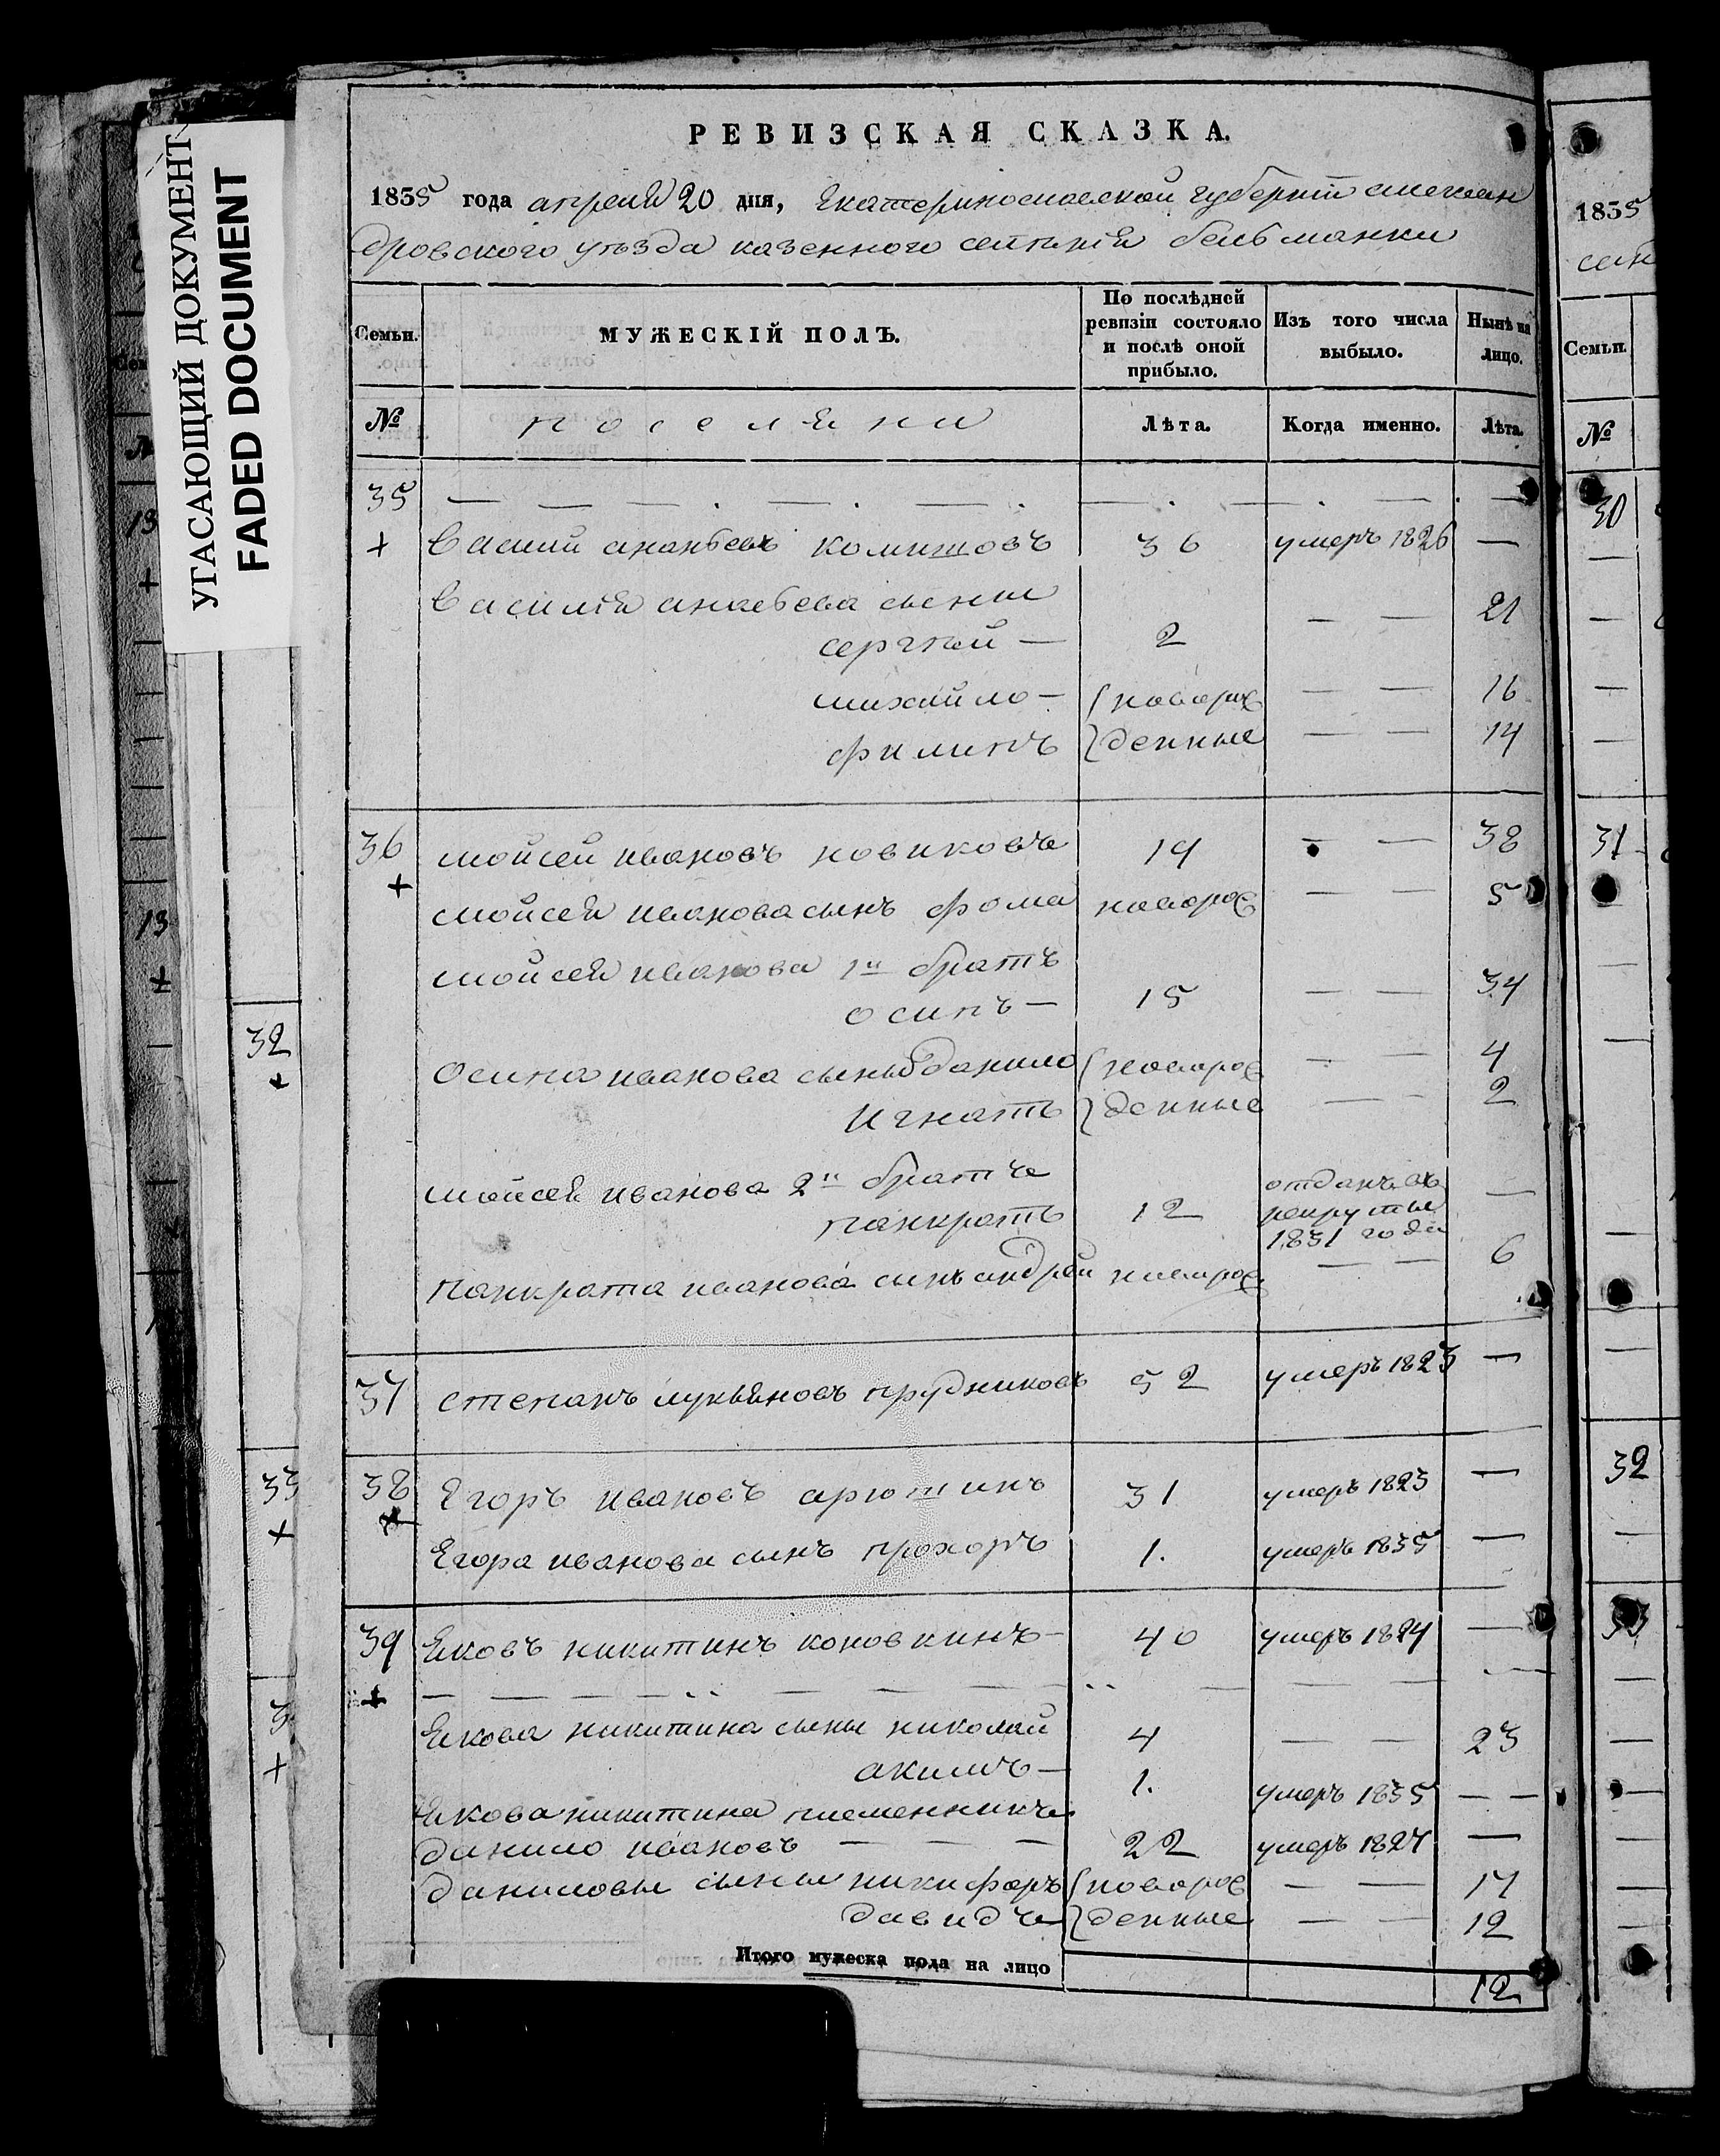 УГАСАЮЩИЙ ДОКУМЕНТ
FADED DOCUMENT
РЕВИЗСКАЯ СКАЗКА.
1835 года апреля 20 дня, Екатеринославской губернiи алексан
дровского уѣзда казенного селенiя бельманки
Семьи. МУЖЕСКIЙ ПОЛЪ. По послѣдней ревизiи состояло и послѣ оной прибыло. Изъ того числа выбыло. Нынѣ на лицо.
№ поселяни Лѣта. Когда именно. Лѣта.
35 — — — . — . — . — . — . — . —
+ Василй ананьевъ комишовъ 36 умеръ 1826 —
Василiя ананьева сыны
сергѣй — 2 — — 21
михайло — новорож — — 16
филипъ денные — — 14
36 мойсей ивановъ новиковъ 19 — — 38
+ мойсея иванова сынъ фома новорож — — 5
мойсея иванова 1й братъ
осипъ — 15 — — 34
осипа иванова сыны данило новорож — — 4
игнатъ денные — — 2
мойсея иванова 2й братъ
панкратъ 12 отданъ въ рекруты 1831 года —
панкрата иванова сынъ андрей новорож — — 6
37 степанъ лукьяновъ прудниковъ 52 умеръ 1823 —
38 Егоръ ивановъ арютинъ 31 умеръ 1823 —
+ Егора иванова сынъ прохоръ 1. умеръ 1835 —
39 Яковъ никитинъ коновкинъ — 40 умеръ 1824 —
+ — — — — — — — — — — —
Якова никитина сыны николай 4 — — 23
акимъ — 1. умеръ 1835 — —
Якова никитина племенникъ
данило ивановъ — — — 22 умеръ 1827 —
даниловы сыны никифоръ новорож — — 17
давидъ денные — — 12
Итого мужеска пола на лицо 12
1835
Семьи.
№
30
31
32
33
32
+
33
+
+
13
+
13
+